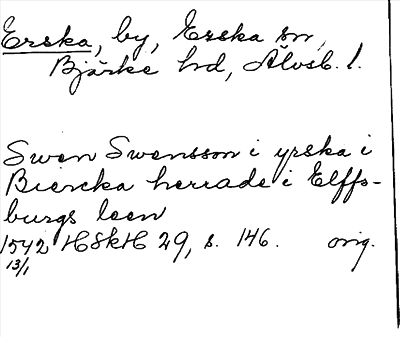 Erska, by, Erska sn,
Bjärke hd, Älvsb. l.
Swen Swensson i yrska i
Biercka herrade i Elffs-
burgs leen
1542 HSkH 29, s. 146. orig.
13/1